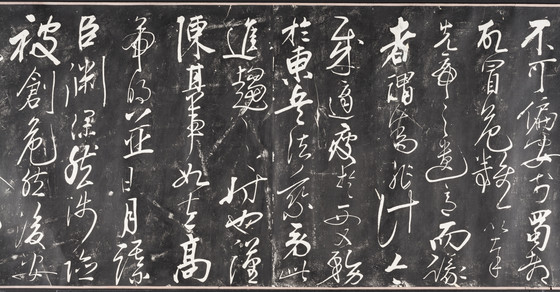 不可偏安於蜀都
故冒危難以奉
先帝之遺意而議
者謂為非計今
賊適疲於西又務
於東兵法乘勞此
進趨時也謹
陳其事如左高
帝明並日月謀
臣淵深然涉險
被創危然後安